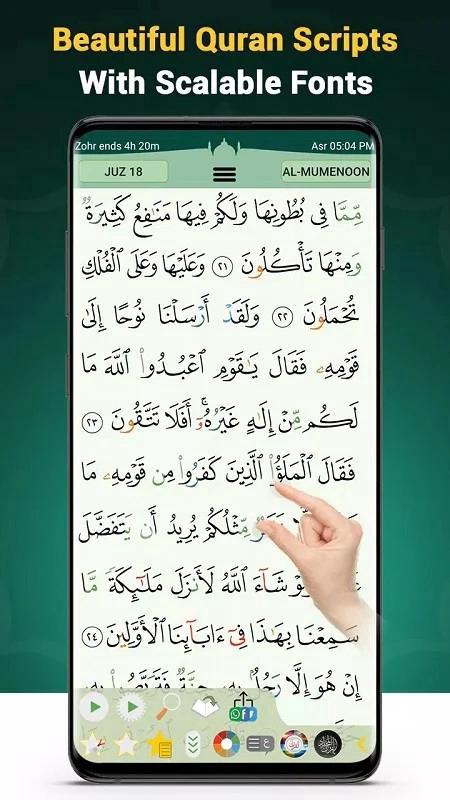 Beautiful Quran Scripts
With Scalable Fonts
Zohr ends 4h 20m
Asr 05:04 PM
JUZ 18
AL-MUMENOON
مِّمَّا فِى بُطُونِهَا وَلَكُمْ فِيهَا مَنَـٰفِعُ كَثِيرَةٌ
وَمِنْهَا تَأْكُلُونَ ٢١ وَعَلَيْهَا وَعَلَى ٱلْفُلْكِ
تُحْمَلُونَ ٢٢ وَلَقَدْ أَرْسَلْنَا نُوحًا إِلَىٰ
قَوْمِهِۦ فَقَالَ يَـٰقَوْمِ ٱعْبُدُوا۟ ٱللَّهَ مَا
لَكُم مِّنْ إِلَـٰهٍ غَيْرُهُۥٓ ۚ أَفَلَا تَتَّقُونَ ٢٣
فَقَالَ ٱلْمَلَؤُا۟ ٱلَّذِينَ كَفَرُوا۟ مِن قَوْمِهِۦ مَا
مِّثْلُكُمْ يُرِيدُ أَن يَتَفَضَّلَ
شَآءَ ٱللَّهُ لَأَنزَلَ مَلَـٰٓئِكَةً مَّا
سَمِعْنَا بِهَـٰذَا فِىٓ ءَابَآئِنَا ٱلْأَوَّلِينَ ٢٤
إِنْ هُوَ إِلَّا رَجُلٌۢ